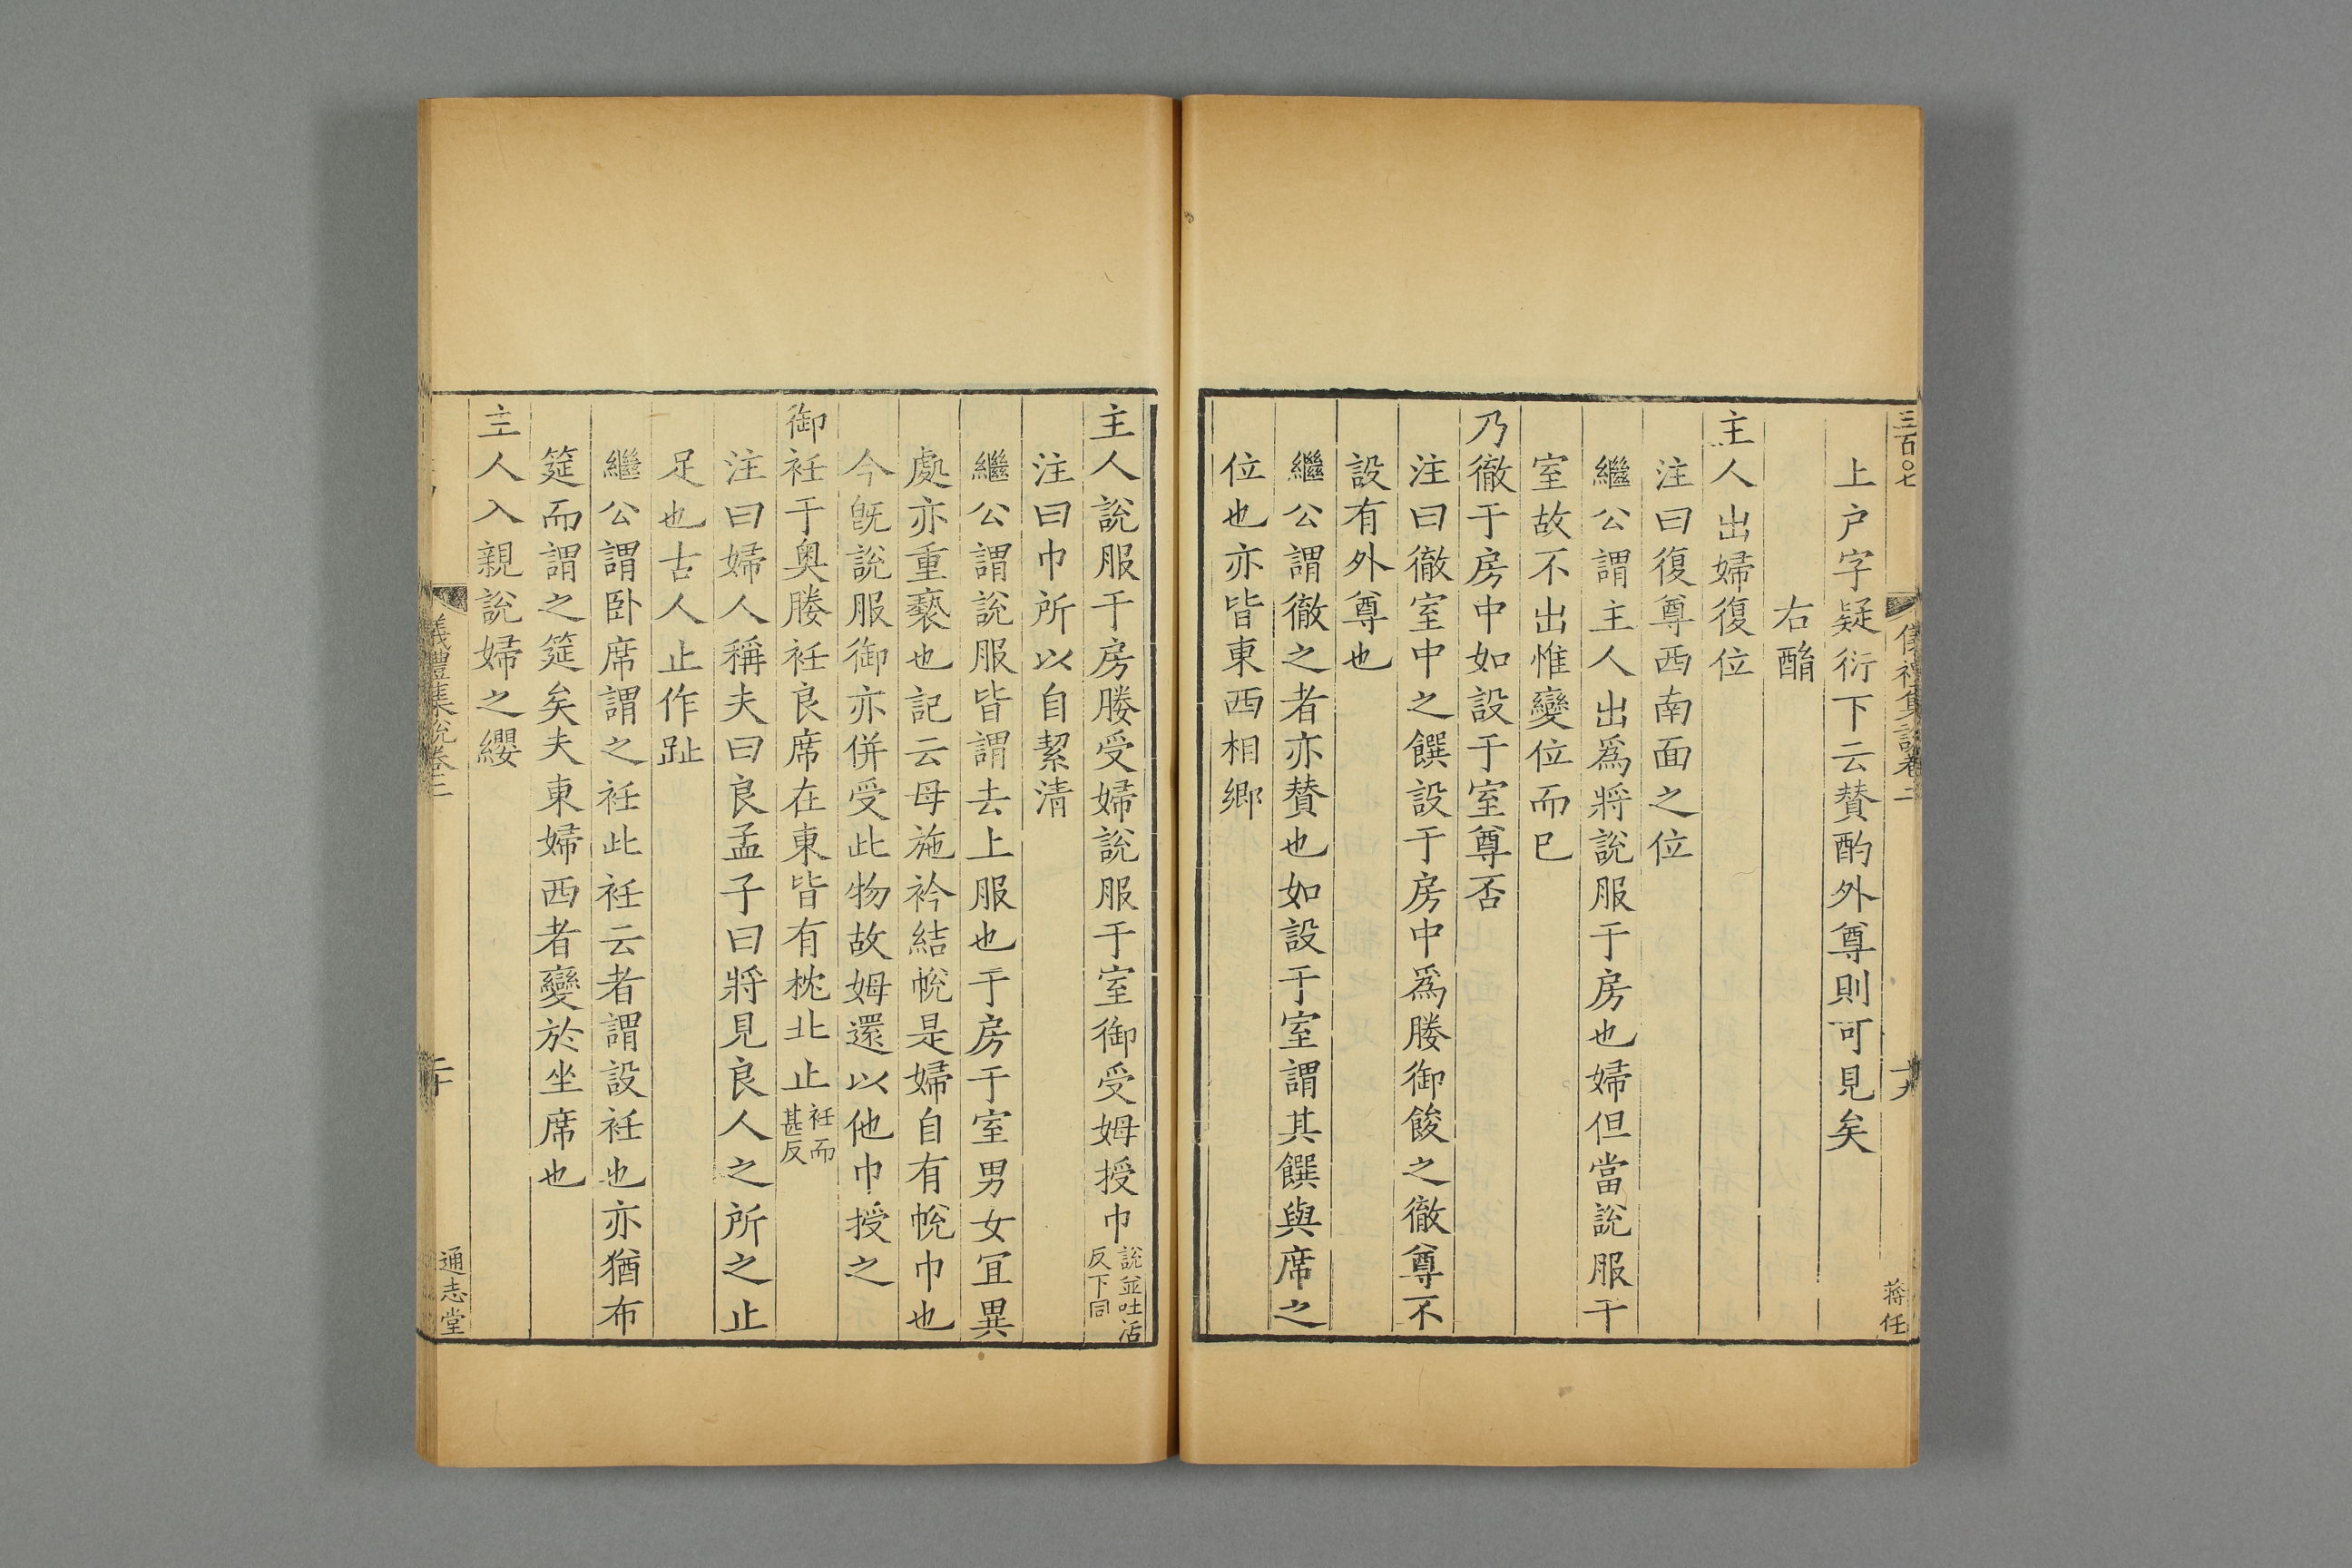 三百〇七
儀禮集說卷二
十九
蔣任
上戶字疑衍下云贊酌外尊則可見矣
右酳
主人出婦復位
注曰復尊西南面之位
繼公謂主人出爲將說服于房也婦但當說服于
室故不出惟變位而已
乃徹于房中如設于室尊否
注曰徹室中之饌設于房中爲媵御餕之徹尊不
設有外尊也
繼公謂徹之者亦贊也如設于室謂其饌與席之
位也亦皆東西相鄉
主人說服于房媵受婦說服于室御受姆授巾說並吐活
反下同
注曰巾所以自絜清
繼公謂說服皆謂去上服也于房于室男女宜異
處亦重褻也記云母施衿結帨是婦自有帨巾也
今旣說服御亦併受此物故姆還以他巾授之
御衽于奧媵衽良席在東皆有枕北止衽而
甚反
注曰婦人稱夫曰良孟子曰將見良人之所之止
足也古人止作趾
繼公謂卧席謂之衽此衽云者謂設衽也亦猶布
筵而謂之筵矣夫東婦西者變於坐席也
主人入親說婦之纓
儀禮集說卷二
二十
通志堂